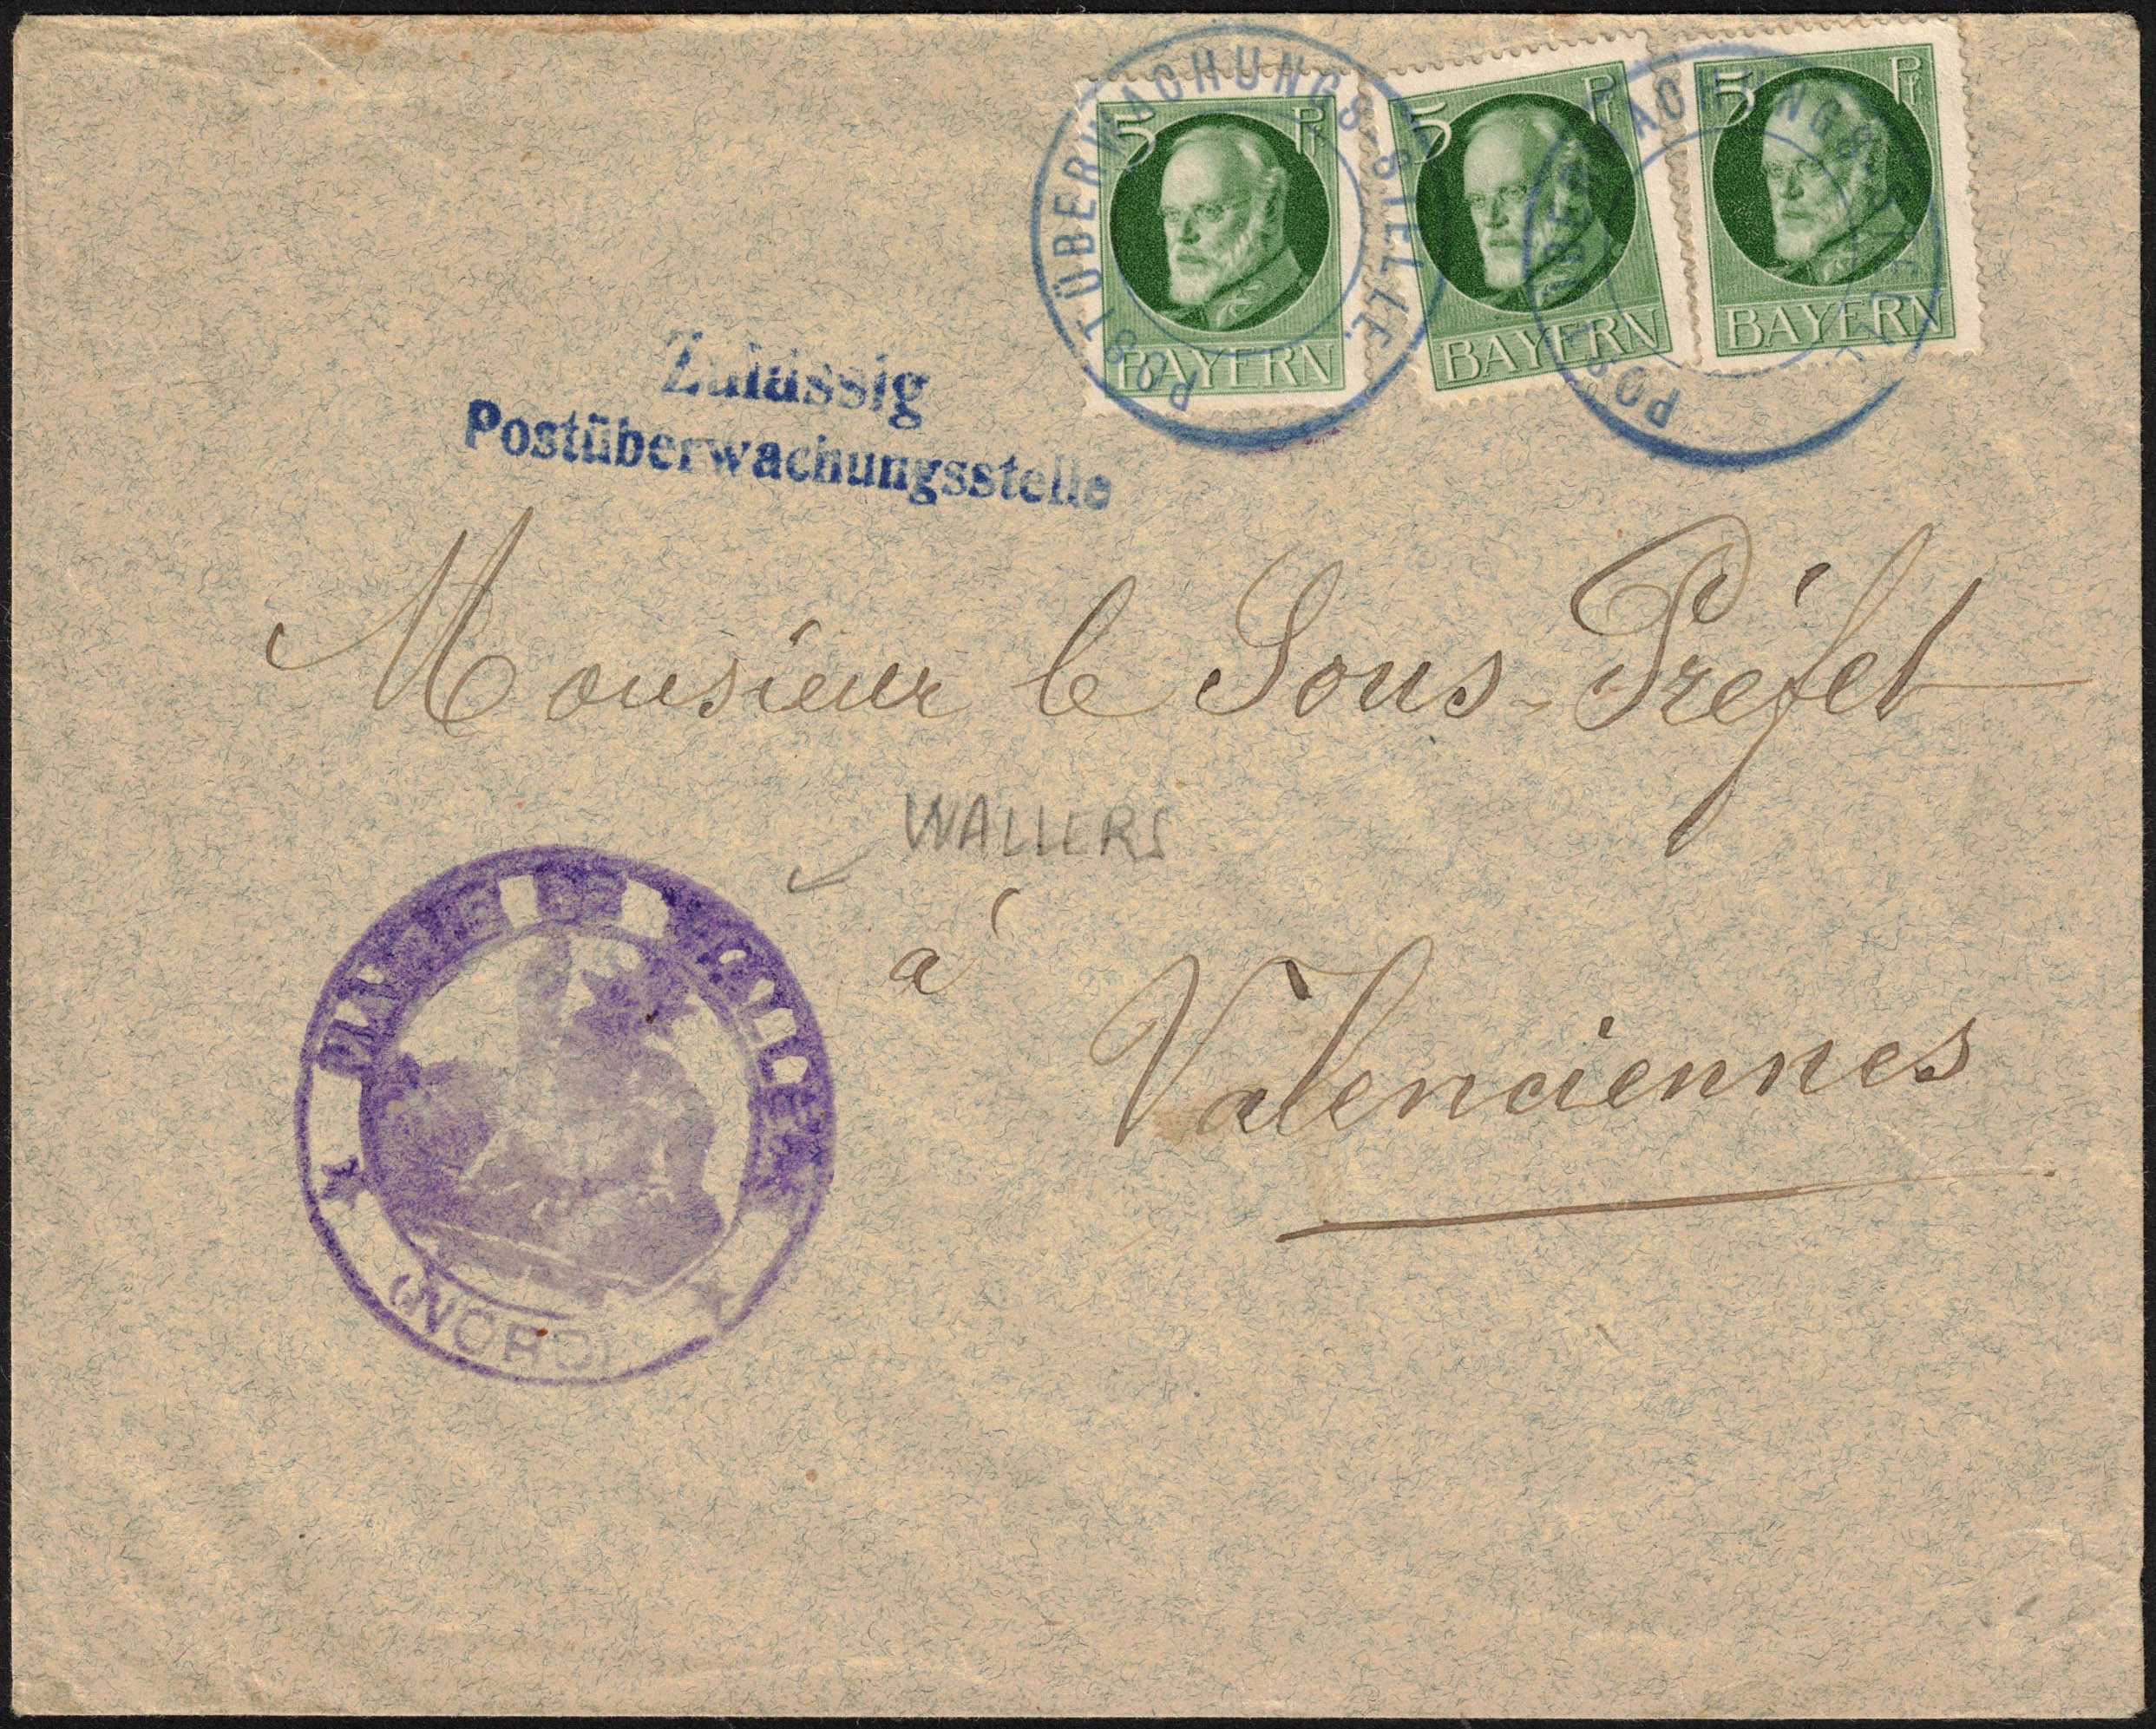 POSTÜBERWACHUNGS-STELLE.
5 Pf
BAYERN
5 Pf
BAYERN
5 Pf
BAYERN
Zulässig
Postüberwachungsstelle
Monsieur le Sous-Préfet
WALLERS
à
Valenciennes
MAIRIE DE
(NORD)